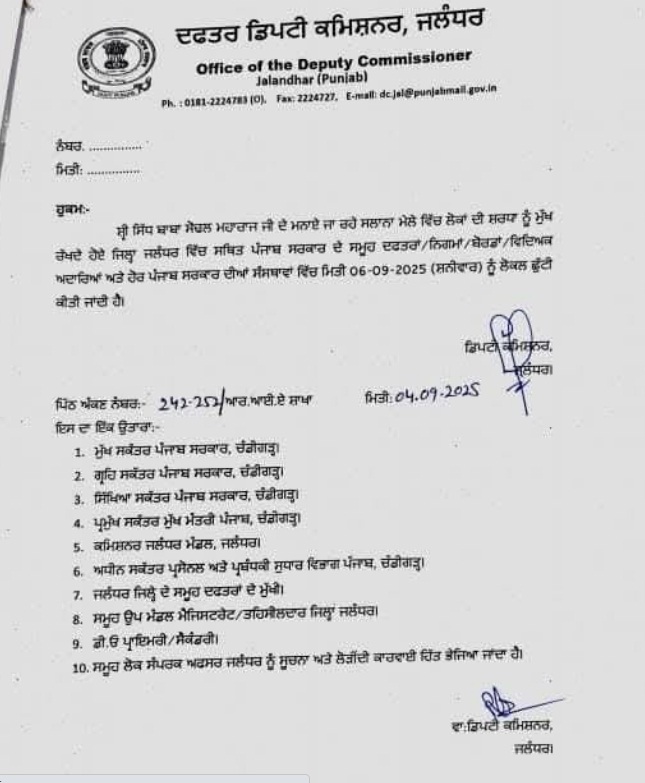 ਦਫਤਰ ਡਿਪਟੀ ਕਮਿਸ਼ਨਰ, ਜਲੰਧਰ
Office of the Deputy Commissioner
Jalandhar (Punjab)
Ph. : 0181-2224783 (O), Fax: 2224727, E-mail: dc.jal@punjabmail.gov.in
ਨੰਬਰ. ...............
ਮਿਤੀ: ...............
ਹੁਕਮ:-
ਸ਼੍ਰੀ ਸਿੱਧ ਬਾਬਾ ਸੋਢਲ ਮਹਾਰਾਜ ਜੀ ਦੇ ਮਨਾਏ ਜਾ ਰਹੇ ਸਲਾਨਾ ਮੇਲੇ ਵਿੱਚ ਲੋਕਾਂ ਦੀ ਸ਼ਰਧਾ ਨੂੰ ਮੁੱਖ
ਰੱਖਦੇ ਹੋਏ ਜਿਲ੍ਹਾ ਜਲੰਧਰ ਵਿੱਚ ਸਥਿਤ ਪੰਜਾਬ ਸਰਕਾਰ ਦੇ ਸਮੂਹ ਦਫਤਰਾਂ/ਨਿਗਮਾਂ/ਬੋਰਡਾਂ/ਵਿਦਿਅਕ
ਅਦਾਰਿਆਂ ਅਤੇ ਹੋਰ ਪੰਜਾਬ ਸਰਕਾਰ ਦੀਆਂ ਸੰਸਥਾਵਾਂ ਵਿੱਚ ਮਿਤੀ 06-09-2025 (ਸ਼ਨੀਵਾਰ) ਨੂੰ ਲੋਕਲ ਛੁੱਟੀ
ਕੀਤੀ ਜਾਂਦੀ ਹੈ।
ਡਿਪਟੀ ਕਮਿਸ਼ਨਰ,
ਜਲੰਧਰ।
ਪਿੱਠ ਅੰਕਣ ਨੰਬਰ:- 242-252/ਆਰ.ਆਈ.ਏ ਸ਼ਾਖਾ ਮਿਤੀ: 04.09.2025
ਇਸ ਦਾ ਇੱਕ ਉਤਾਰਾ:-
1. ਮੁੱਖ ਸਕੱਤਰ ਪੰਜਾਬ ਸਰਕਾਰ, ਚੰਡੀਗੜ੍ਹ।
2. ਗ੍ਰਹਿ ਸਕੱਤਰ ਪੰਜਾਬ ਸਰਕਾਰ, ਚੰਡੀਗੜ੍ਹ।
3. ਸਿੱਖਿਆ ਸਕੱਤਰ ਪੰਜਾਬ ਸਰਕਾਰ, ਚੰਡੀਗੜ੍ਹ।
4. ਪ੍ਰਮੁੱਖ ਸਕੱਤਰ ਮੁੱਖ ਮੰਤਰੀ ਪੰਜਾਬ, ਚੰਡੀਗੜ੍ਹ।
5. ਕਮਿਸ਼ਨਰ ਜਲੰਧਰ ਮੰਡਲ, ਜਲੰਧਰ।
6. ਅਧੀਨ ਸਕੱਤਰ ਪ੍ਰਸੋਨਲ ਅਤੇ ਪ੍ਰਬੰਧਕੀ ਸੁਧਾਰ ਵਿਭਾਗ ਪੰਜਾਬ, ਚੰਡੀਗੜ੍ਹ।
7. ਜਲੰਧਰ ਜਿਲ੍ਹੇ ਦੇ ਸਮੂਹ ਦਫਤਰਾਂ ਦੇ ਮੁੱਖੀ।
8. ਸਮੂਹ ਉਪ ਮੰਡਲ ਮੈਜਿਸਟਰੇਟ/ਤਹਿਸੀਲਦਾਰ ਜਿਲ੍ਹਾਂ ਜਲੰਧਰ।
9. ਡੀ.ਓ ਪ੍ਰਾਇਮਰੀ/ਸੈਕੰਡਰੀ।
10. ਸਮੂਹ ਲੋਕ ਸੰਪਰਕ ਅਫਸਰ ਜਲੰਧਰ ਨੂੰ ਸੂਚਨਾ ਅਤੇ ਲੋੜੀਂਦੀ ਕਾਰਵਾਈ ਹਿੱਤ ਭੇਜਿਆ ਜਾਂਦਾ ਹੈ।
ਵਾ:ਡਿਪਟੀ ਕਮਿਸ਼ਨਰ,
ਜਲੰਧਰ।